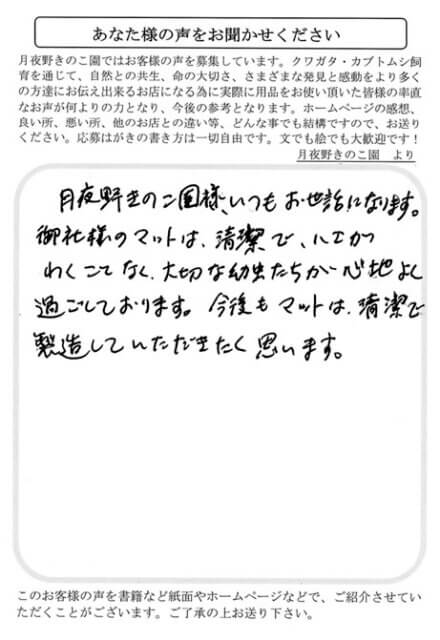 あなた様の声をお聞かせください
月夜野きのこ園ではお客様の声を募集しています。クワガタ・カブトムシ飼
育を通じて、自然との共生、命の大切さ、さまざまな発見と感動をより多く
の方達にお伝え出来るお店になる為に実際に用品をお使い頂いた皆様の率直
なお声が何よりの力となり、今後の参考となります。ホームページの感想、
良い所、悪い所、他のお店との違い等、どんな事でも結構ですので、お送り
ください。応募はがきの書き方は一切自由です。文でも絵でも大歓迎です！
月夜野きのこ園　より
月夜野きのこ園様、いつもお世話になります。
御社様のマットは、清潔で、ハエが
わくことなく、大切な幼虫たちが心地よく
過ごしております。今後もマットは、清潔で
製造していただきたく思います。
このお客様の声を書籍など紙面やホームページなどで、ご紹介させていた
だくことがございます。ご了承の上お送り下さい。